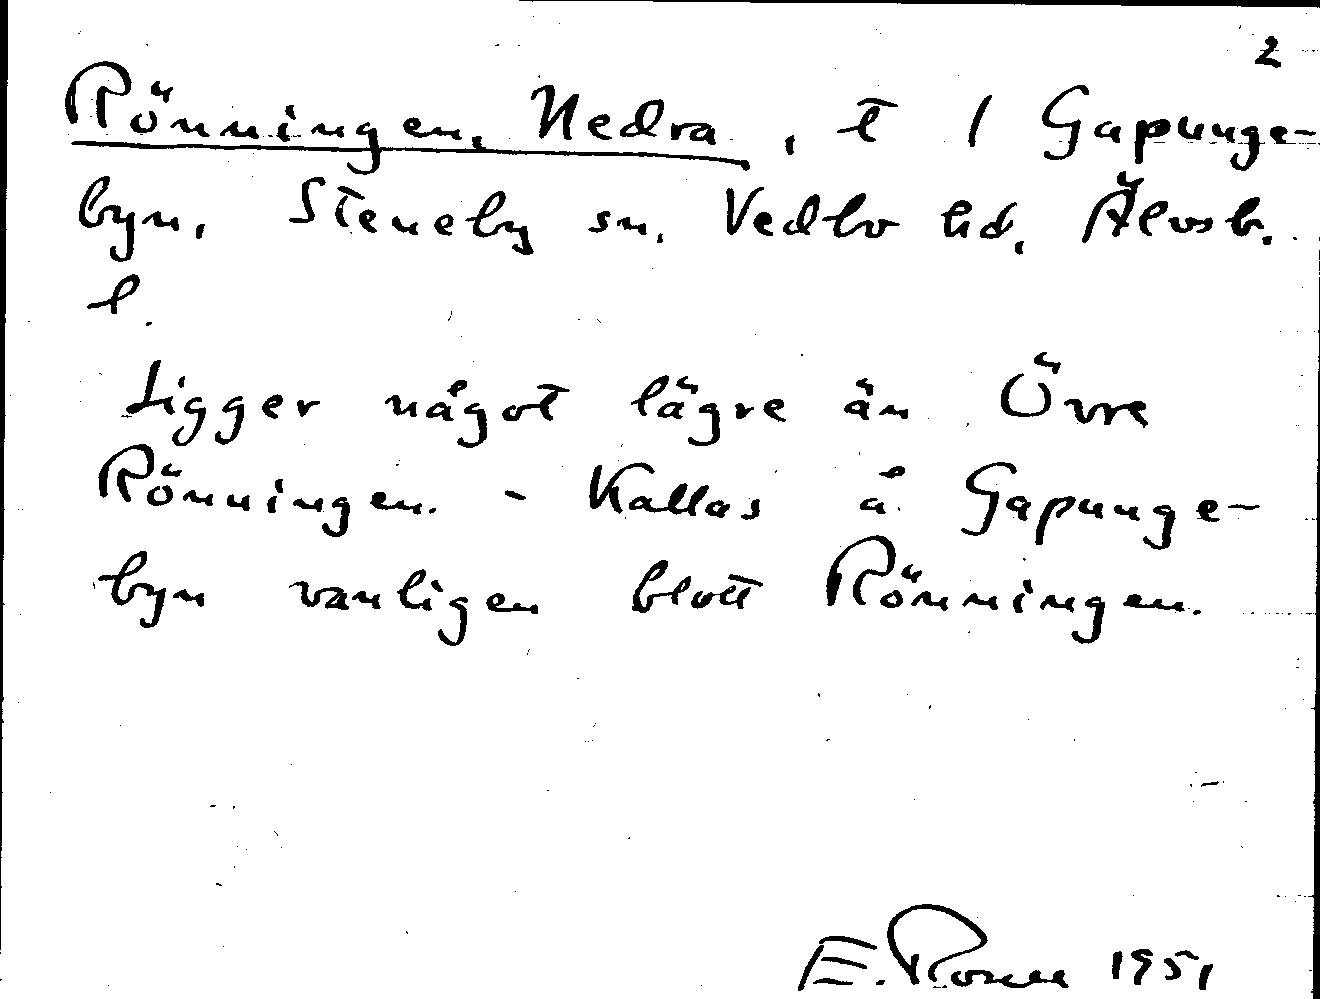 2
Rönningen, Nedra, t / Gapunge-
byn, Steneby sn, Vedbo hd, Älvsb.
l.
Ligger något lägre än Övre
Rönningen. - Kallas å Gapunge-
byn vanligen blott Rönningen.
E. 1951